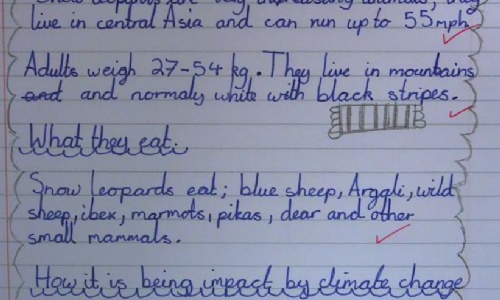 Snow leopards are very interesting animals, they
live in central Asia and can run up to 55mph.
Adults weigh 27-54 kg. They live in mountains
and and normaly white with black stripes.
What they eat.
Snow leopards eat; blue sheep, Argali, wild
sheep, ibex, marmots, pikas, dear and other
small mammals.
How it is being impact by climate change